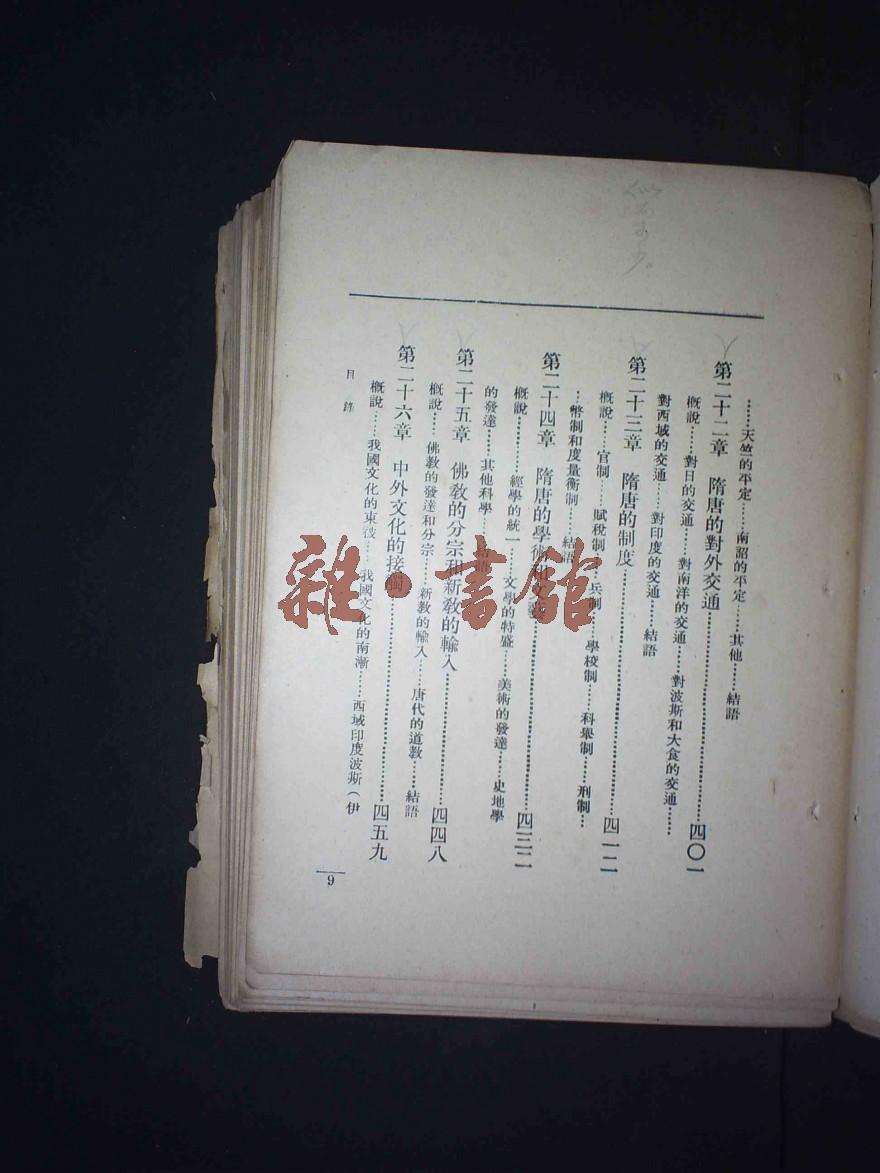 ……天竺的平定……南詔的平定……其他……結語
第二十二章 隋唐的對外交通……四〇一
概說……對日的交通……對南洋的交通……對波斯和大食的交通……
對西域的交通……對印度的交通……結語
第二十三章 隋唐的制度……四一二
概說……官制……賦稅制……兵制……學校制……科舉制……刑制……
…幣制和度量衡制……結語
第二十四章 隋唐的學術和文藝……四三二
概說……經學的統一……文學的特盛……美術的發達……史地學
的發達……其他科學……結語
第二十五章 佛教的分宗和新教的輸入……四四八
概說……佛教的發達和分宗……新教的輸入……唐代的道教……結語
第二十六章 中外文化的接觸……四五九
概說……我國文化的東被……我國文化的南漸……西域印度波斯（伊
目錄
9
雜·書館